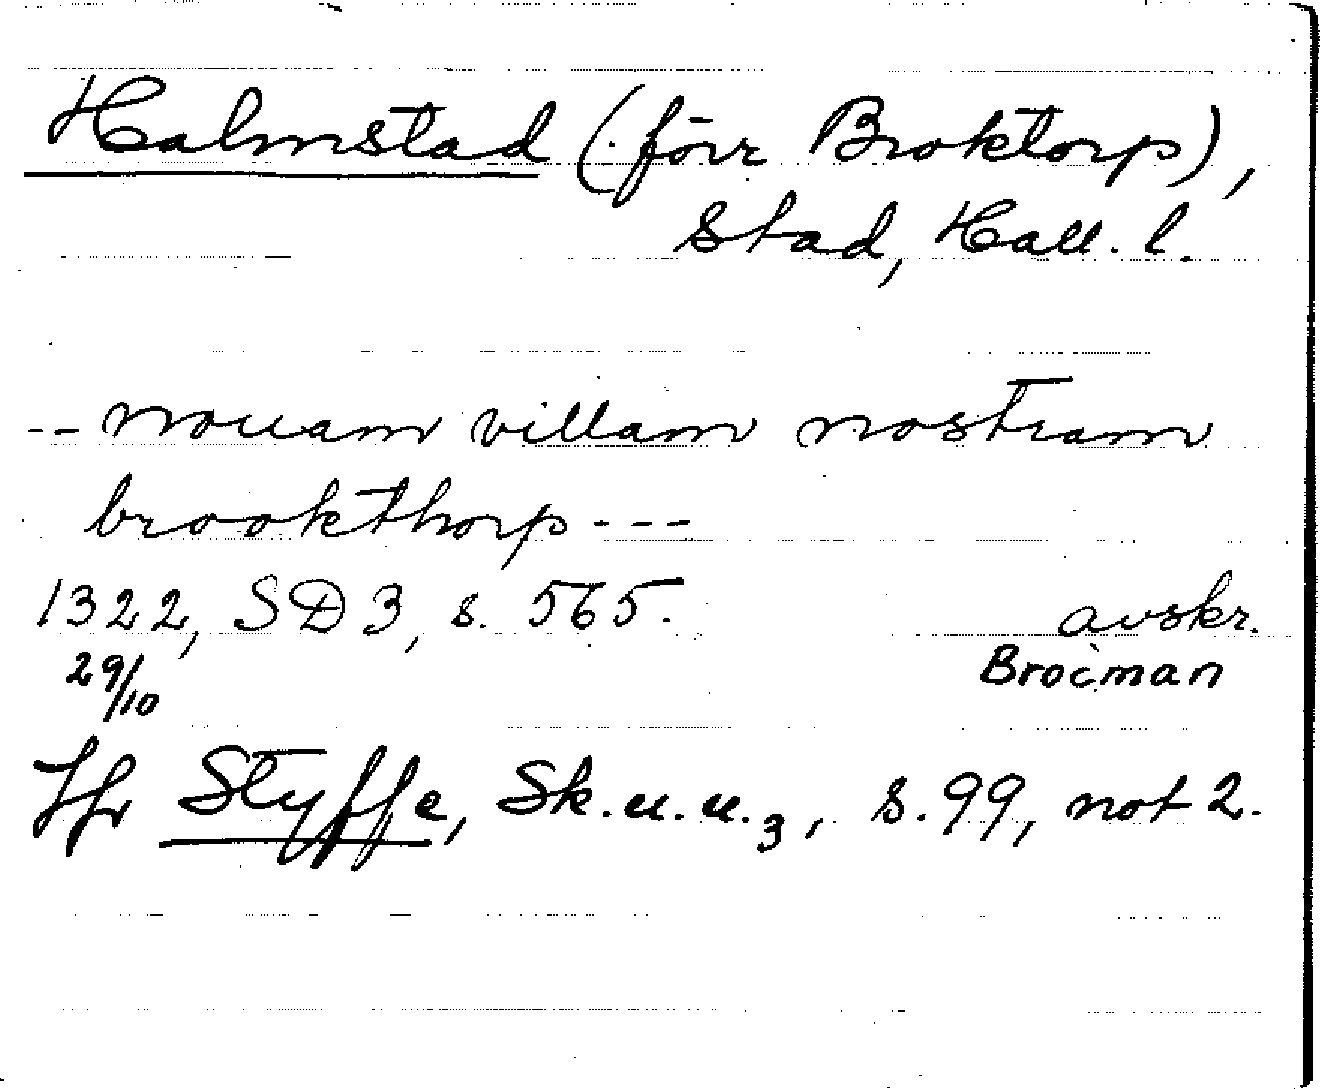 Halmstad (förr Broktorp),
stad, Hall. l.
-- nouam villam nostram
brookthorp ---
1322, SD 3, s. 565. avskr.
29/10 Brocman
Jfr Styffe, Sk.u.u.3, s. 99, not 2.